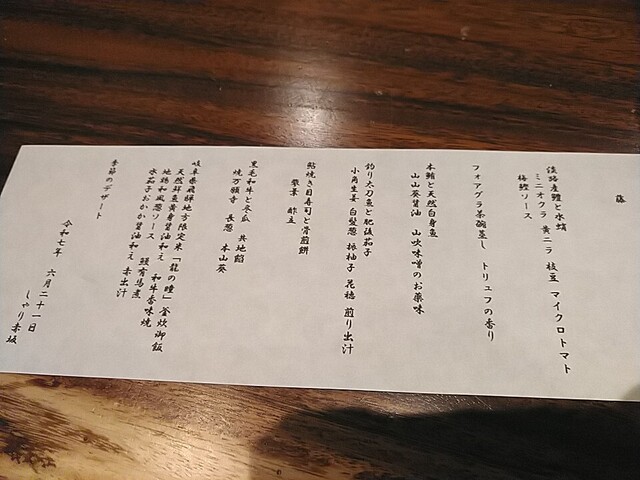 藤
淡路産鱧と水蛸
ミニオクラ 黄ニラ 枝豆 マイクロトマト
梅鰹ソース
フォアグラ茶碗蒸し トリュフの香り
本鮪と天然白身魚
山山葵醤油 山吹味噌のお薬味
釣り太刀魚と肥後茄子
小角生姜 白髪葱 振柚子 花穂 煎り出汁
鮎焼き目寿司と骨煎餅
酢立
黒毛和牛と冬瓜 共地餡
焼万願寺 長葱 本山葵
岐阜県飛騨地方限定米「龍の瞳」釜炊御飯
天然鮮魚黄身醤油和え 和牛香味焼
地鶏和風葱ソース 有馬煮
水茄子おかか醤油和え 赤出汁
季節のデザート
令和七年 六月二十一日
しゃり赤坂